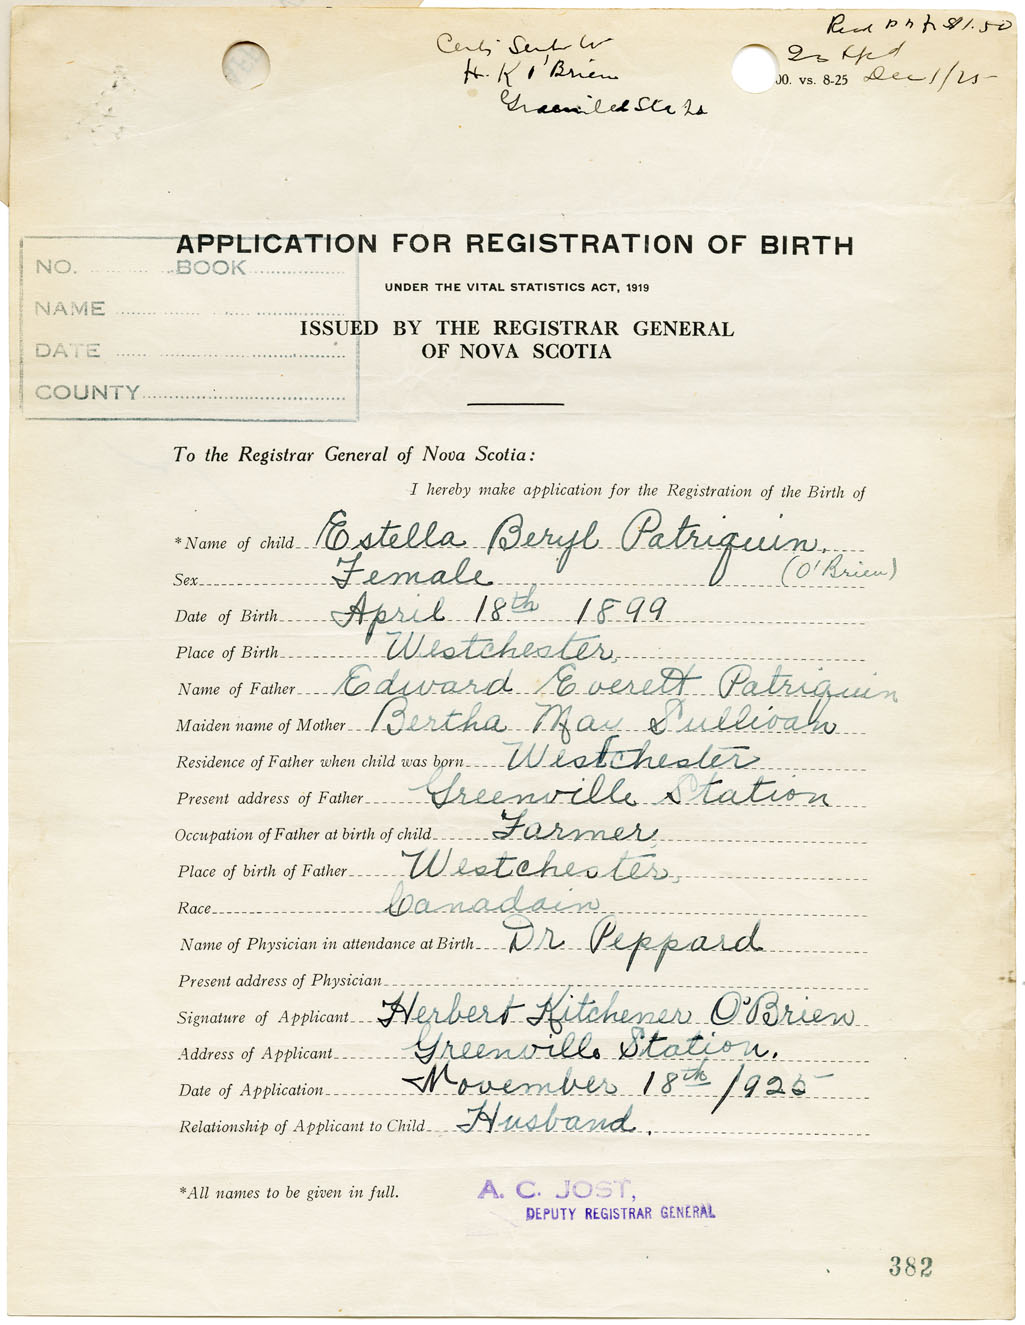 Recd $1.50
H. K O'Brien
00. vs. 8-25 Dec 1/25
APPLICATION FOR REGISTRATION OF BIRTH
UNDER THE VITAL STATISTICS ACT, 1919
ISSUED BY THE REGISTRAR GENERAL
OF NOVA SCOTIA
NO. BOOK
NAME
DATE
COUNTY
To the Registrar General of Nova Scotia:
I hereby make application for the Registration of the Birth of
*Name of child Estella Beryl Patriquin.
Sex Female (O'Brien)
Date of Birth April 18th 1899
Place of Birth Westchester,
Name of Father Edward Everett Patriquin
Maiden name of Mother Bertha May Sullivan
Residence of Father when child was born Westchester
Present address of Father Greenville Station
Occupation of Father at birth of child Farmer,
Place of birth of Father Westchester,
Race Canadain
Name of Physician in attendance at Birth Dr Peppard
Present address of Physician
Signature of Applicant Herbert Kitchener O'Brien
Address of Applicant Greenville Station.
Date of Application November 18th /1925
Relationship of Applicant to Child Husband.
*All names to be given in full.
A. C. JOST,
DEPUTY REGISTRAR GENERAL
382